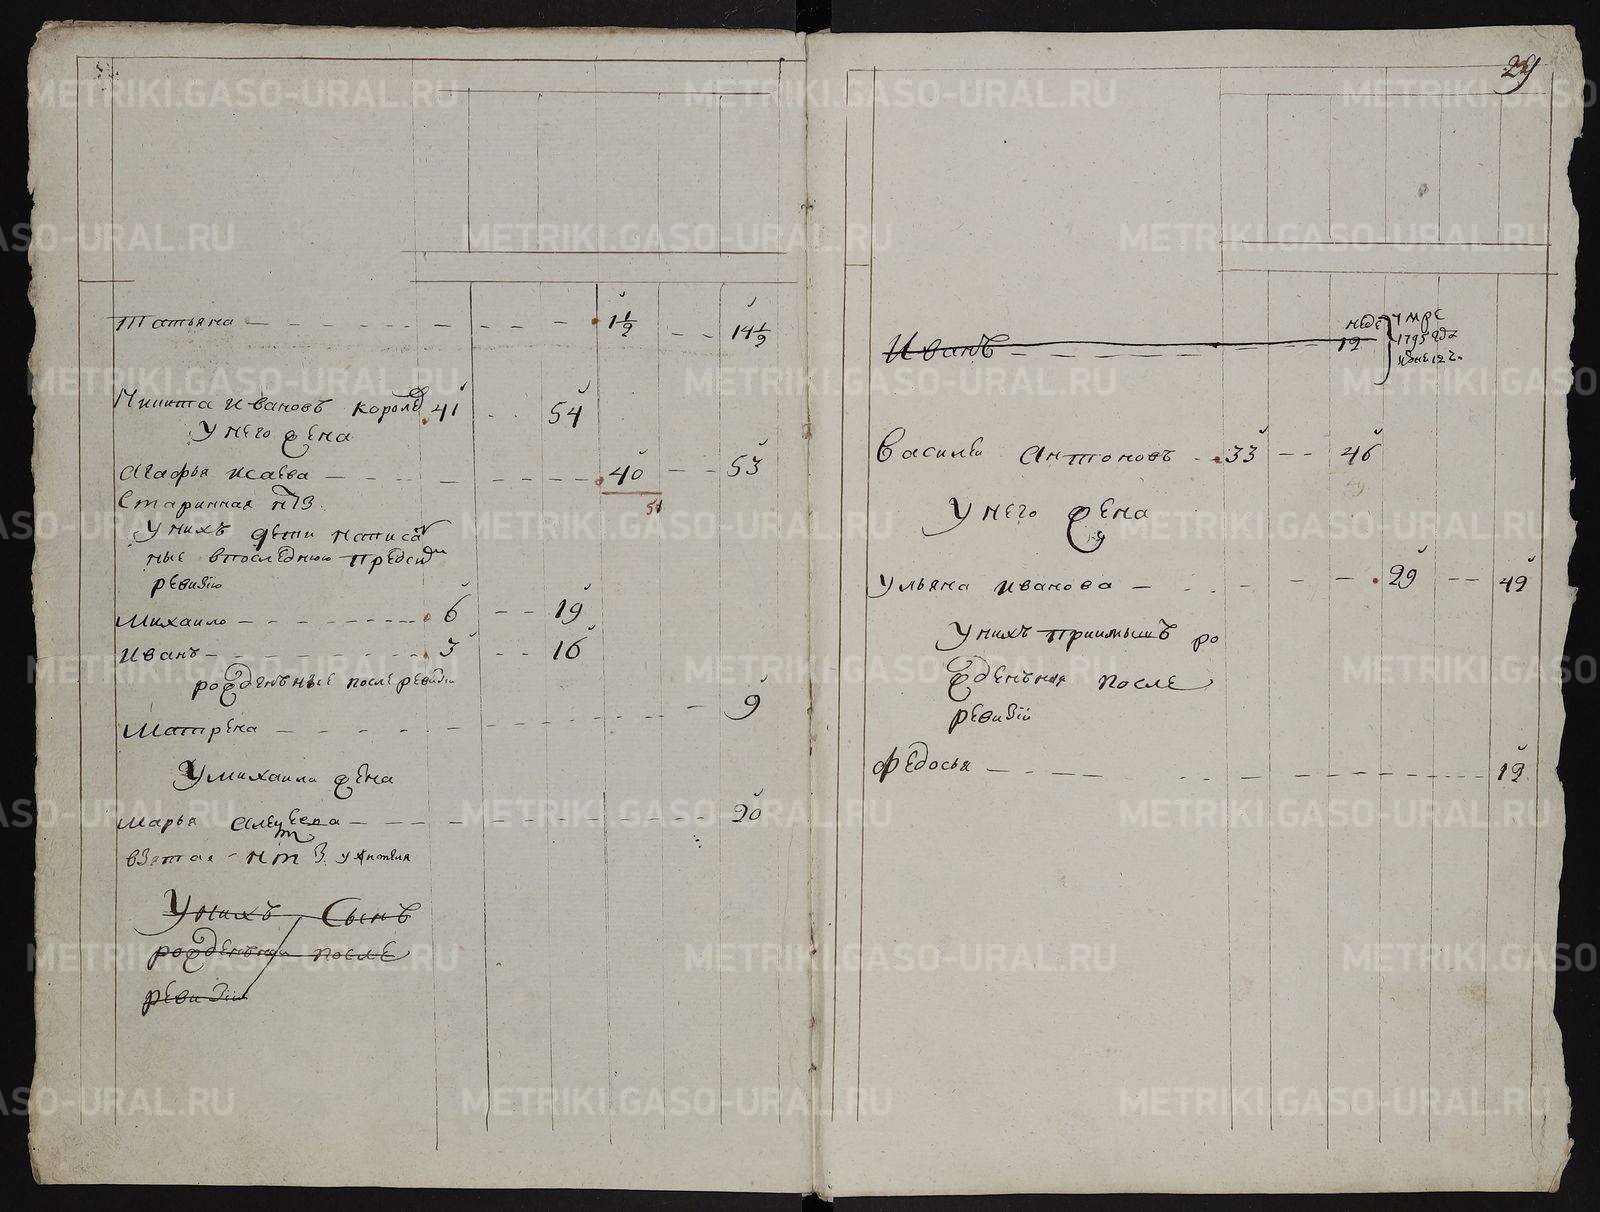 Татьяна 1½ 14½
Никита Ивановъ 41 54
У него жена
Агафья Исаева 40 53
Старинная
51
У нихъ дети написа
ные в последнюю пред сим
ревизию
Михаило 6 19
Иванъ 3 16
рожденъные после ревизии
Матрена 9
У михаила жена
Марья 20
взятая
У нихъ Сынъ
рожденъный после
ревизии
29
Иванъ 12 неде умре
1795 года
Василеи Антоновъ 33 46
У него жена
Ульяна Иванова 29 42
У нихъ приимышъ ро
жденъная после
ревизии
Федосья 12
METRIKI.GASO-URAL.RU